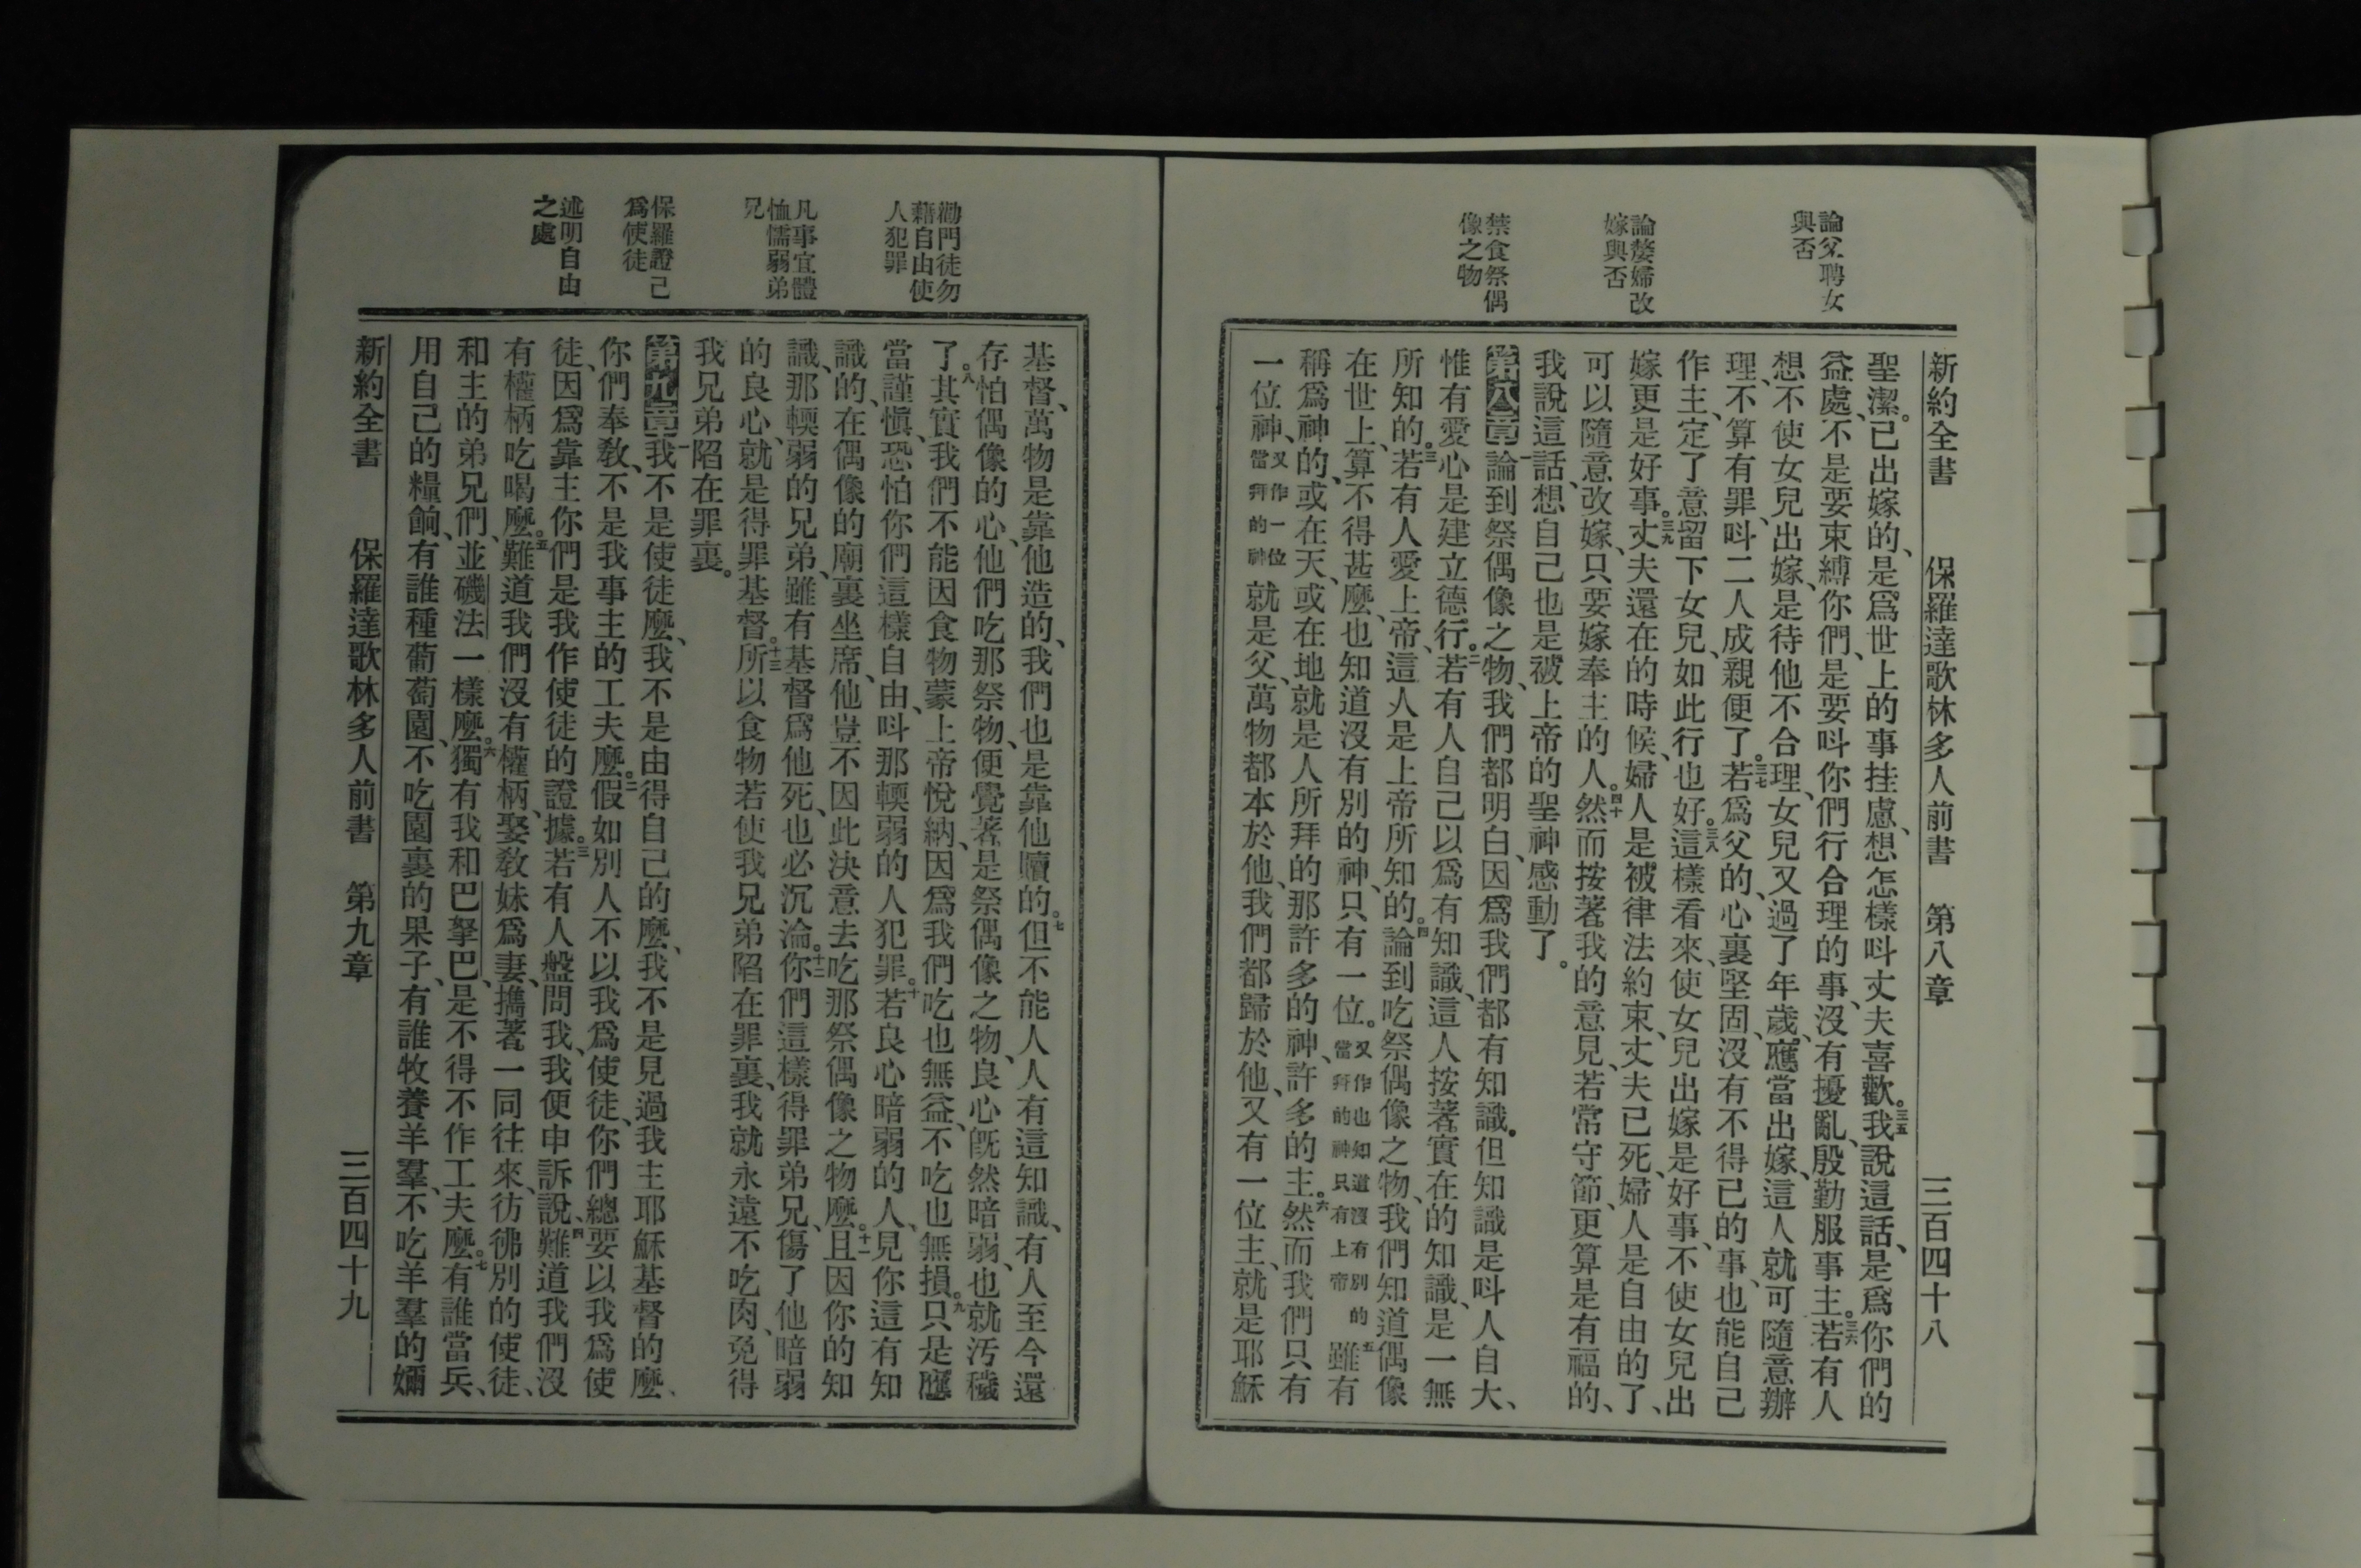 論父聘女
與否
論嫠婦改
嫁與否
禁食祭偶
像之物
新約全書 保羅達歌林多人前書 第八章 三百四十八
聖潔。已出嫁的、是爲世上的事挂慮、想怎樣呌丈夫喜歡。三五我說這話、是爲你們的
益處、不是要束縛你們、是要呌你們行合理的事、沒有擾亂、殷勤服事主。三六若有人
想、不使女兒出嫁、是待他不合理、女兒又過了年歲、應當出嫁、這人就可隨意辦
理、不算有罪、呌二人成親便了。三七若爲父的、心裏堅固、沒有不得已的事、也能自己
作主、定了意留下女兒、如此行也好。三八這樣看來、使女兒出嫁是好事、不使女兒出
嫁更是好事。三九丈夫還在的時候、婦人是被律法約束、丈夫已死、婦人是自由的了、
可以隨意改嫁、只要嫁奉主的人。四十然而按著我的意見、若常守節更算是有福的、
我說這話、想自己也是被上帝的聖神感動了。
第八章一論到祭偶像之物、我們都明白、因爲我們都有知識。但知識是呌人自大、
惟有愛心是建立德行。二若有人自己以爲有知識、這人按著實在的知識、是一無
所知的。三若有人愛上帝、這人是上帝所知的。四論到吃祭偶像之物、我們知道偶像
在世上、算不得甚麼、也知道沒有別的神、只有一位。又作也知道沒有別的當拜的神只有上帝五雖有
稱爲神的、或在天、或在地、就是人所拜的那許多的神、許多的主。六然而我們只有
一位神、又作一位當拜的神就是父、萬物都本於他、我們都歸於他、又有一位主、就是耶穌
勸門徒勿
藉自由使
人犯罪
凡事宜體
恤懦弱弟
兄
保羅證己
爲使徒
述明自由
之處
基督、萬物是靠他造的、我們也是靠他贖的。七但不能人人有這知識、有人至今還
存怕偶像的心、他們吃那祭物、便覺著是祭偶像之物、良心旣然暗弱、也就汚穢
了。八其實我們不能因食物蒙上帝悅納、因爲我們吃也無益、不吃也無損。九只是應
當謹愼、恐怕你們這樣自由、呌那輭弱的人犯罪。十若良心暗弱的人、見你這有知
識的、在偶像的廟裏坐席、他豈不因此決意去吃那祭偶像之物麼。十一且因你的知
識、那輭弱的兄弟、雖有基督爲他死、也必沉淪。十二你們這樣得罪弟兄、傷了他暗弱
的良心、就是得罪基督。十三所以食物若使我兄弟陷在罪裏、我就永遠不吃肉、免得
我兄弟陷在罪裏。
第九章一我不是使徒麼、我不是由得自己的麼、我不是見過我主耶穌基督的麼、
你們奉敎、不是我事主的工夫麼。二假如別人不以我爲使徒、你們總要以我爲使
徒、因爲靠主你們是我作使徒的證據。三若有人盤問我、我便申訴說、四難道我們沒
有權柄吃喝麼。五難道我們沒有權柄、娶敎妹爲妻、攜著一同往來、彷彿別的使徒、
和主的弟兄們、並磯法一樣麼。六獨有我和巴拏巴、是不得不作工夫麼。七有誰當兵、
用自己的糧餉、有誰種葡萄園、不吃園裏的果子、有誰牧養羊羣、不吃羊羣的嬭
新約全書 保羅達歌林多人前書 第九章 三百四十九